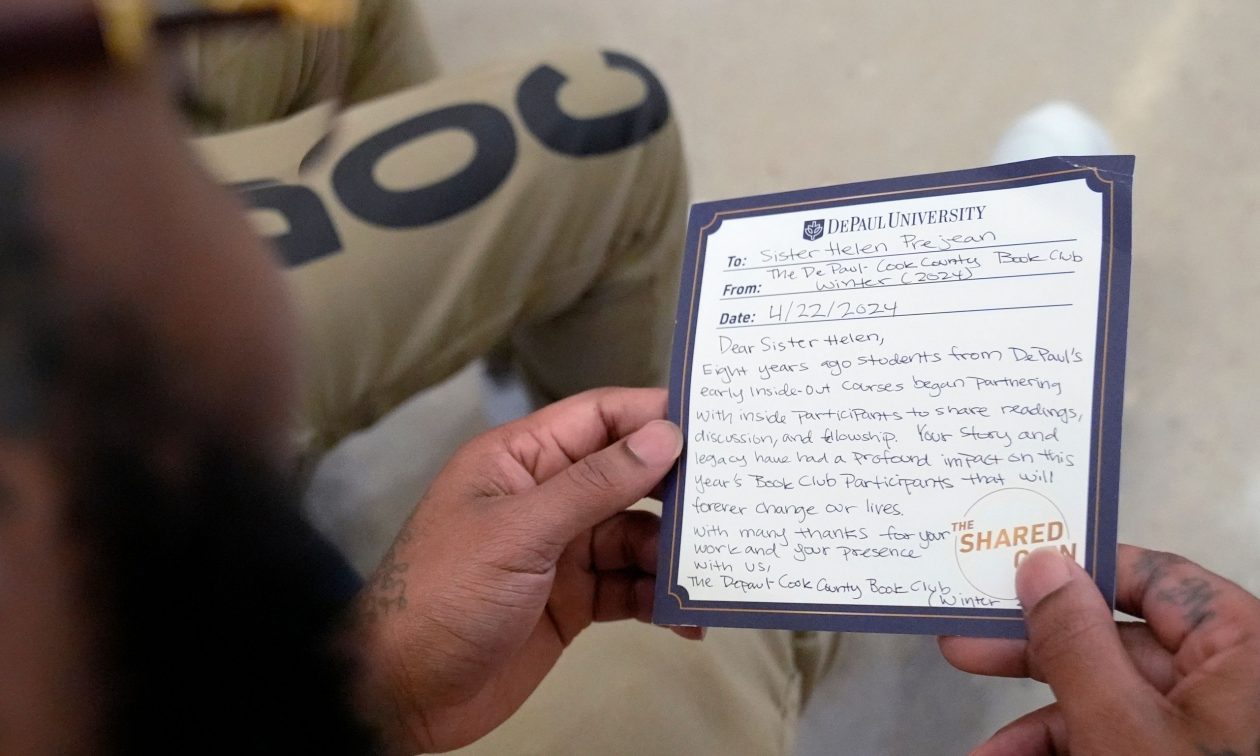 DOC
DEPAUL UNIVERSITY
To: Sister Helen Prejean
The DePaul-Cook County Book Club
From: Winter (2024)
Date: 4/22/2024
Dear Sister Helen,
Eight years ago students from DePaul's
early Inside-Out courses began partnering
with inside participants to share readings,
discussion, and fellowship. Your story and
legacy have had a profound impact on this
year's Book Club Participants that will
forever change our lives.
With many thanks for your
work and your presence
with us,
The DePaul Cook County Book Club
(Winter
THE
SHARED